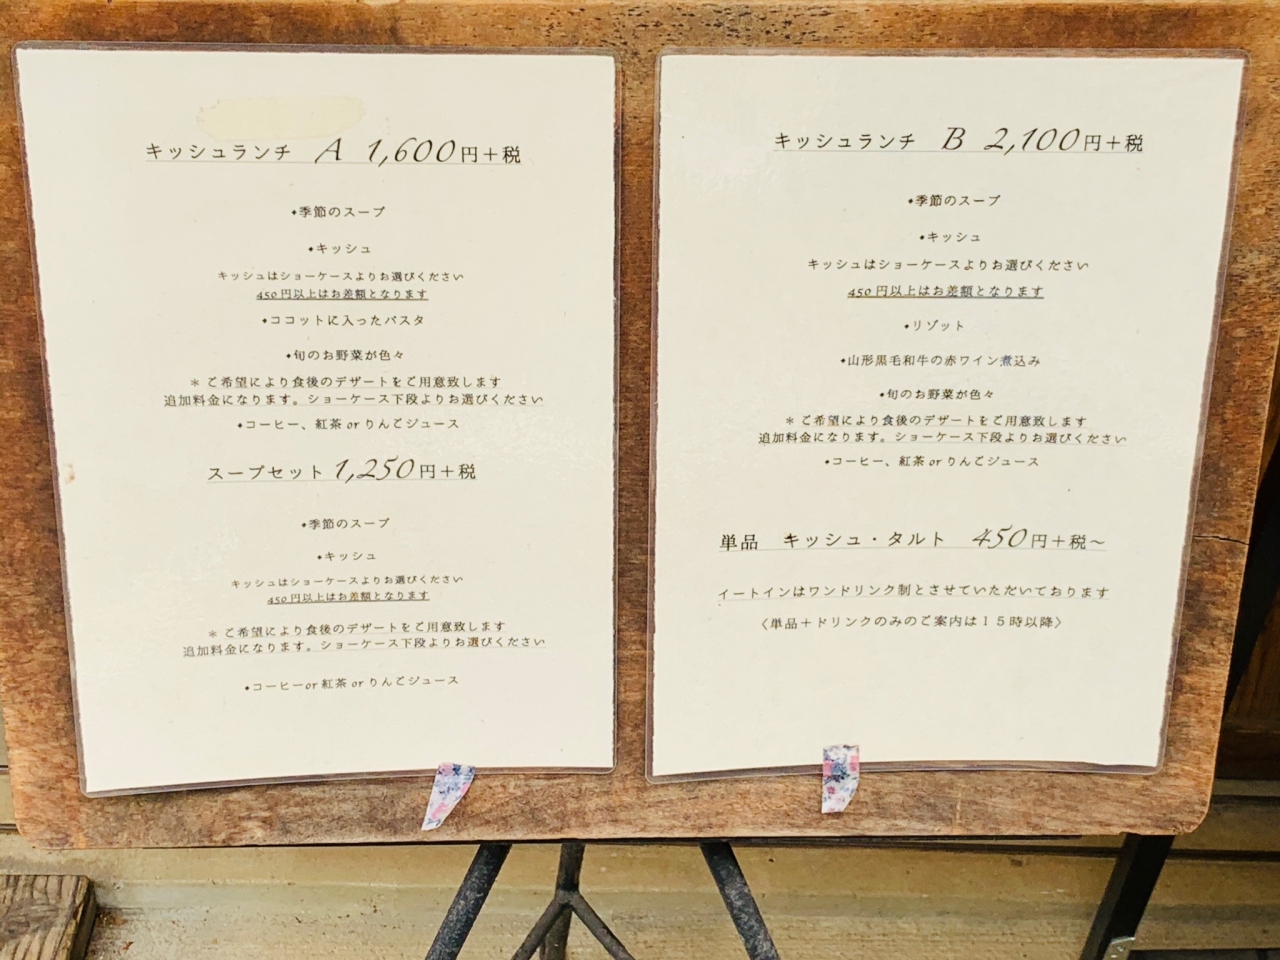 キッシュランチ　A　1,600円＋税
•季節のスープ
•キッシュ
キッシュはショーケースよりお選びください
450円以上はお差額となります
•ココットに入ったパスタ
•旬のお野菜が色々
＊ご希望により食後のデザートをご用意致します
追加料金になります。ショーケース下段よりお選びください
•コーヒー、紅茶 or りんごジュース
スープセット 1,250円＋税
•季節のスープ
•キッシュ
キッシュはショーケースよりお選びください
450円以上はお差額となります
＊ご希望により食後のデザートをご用意致します
追加料金になります。ショーケース下段よりお選びください
•コーヒーor 紅茶 or りんごジュース
キッシュランチ　B　2,100円＋税
•季節のスープ
•キッシュ
キッシュはショーケースよりお選びください
450円以上はお差額となります
•リゾット
•山形黒毛和牛の赤ワイン煮込み
•旬のお野菜が色々
＊ご希望により食後のデザートをご用意致します
追加料金になります。ショーケース下段よりお選びください
•コーヒー、紅茶 or りんごジュース
単品　キッシュ・タルト　450円＋税〜
イートインはワンドリンク制とさせていただいております
〈単品＋ドリンクのみのご案内は１５時以降〉